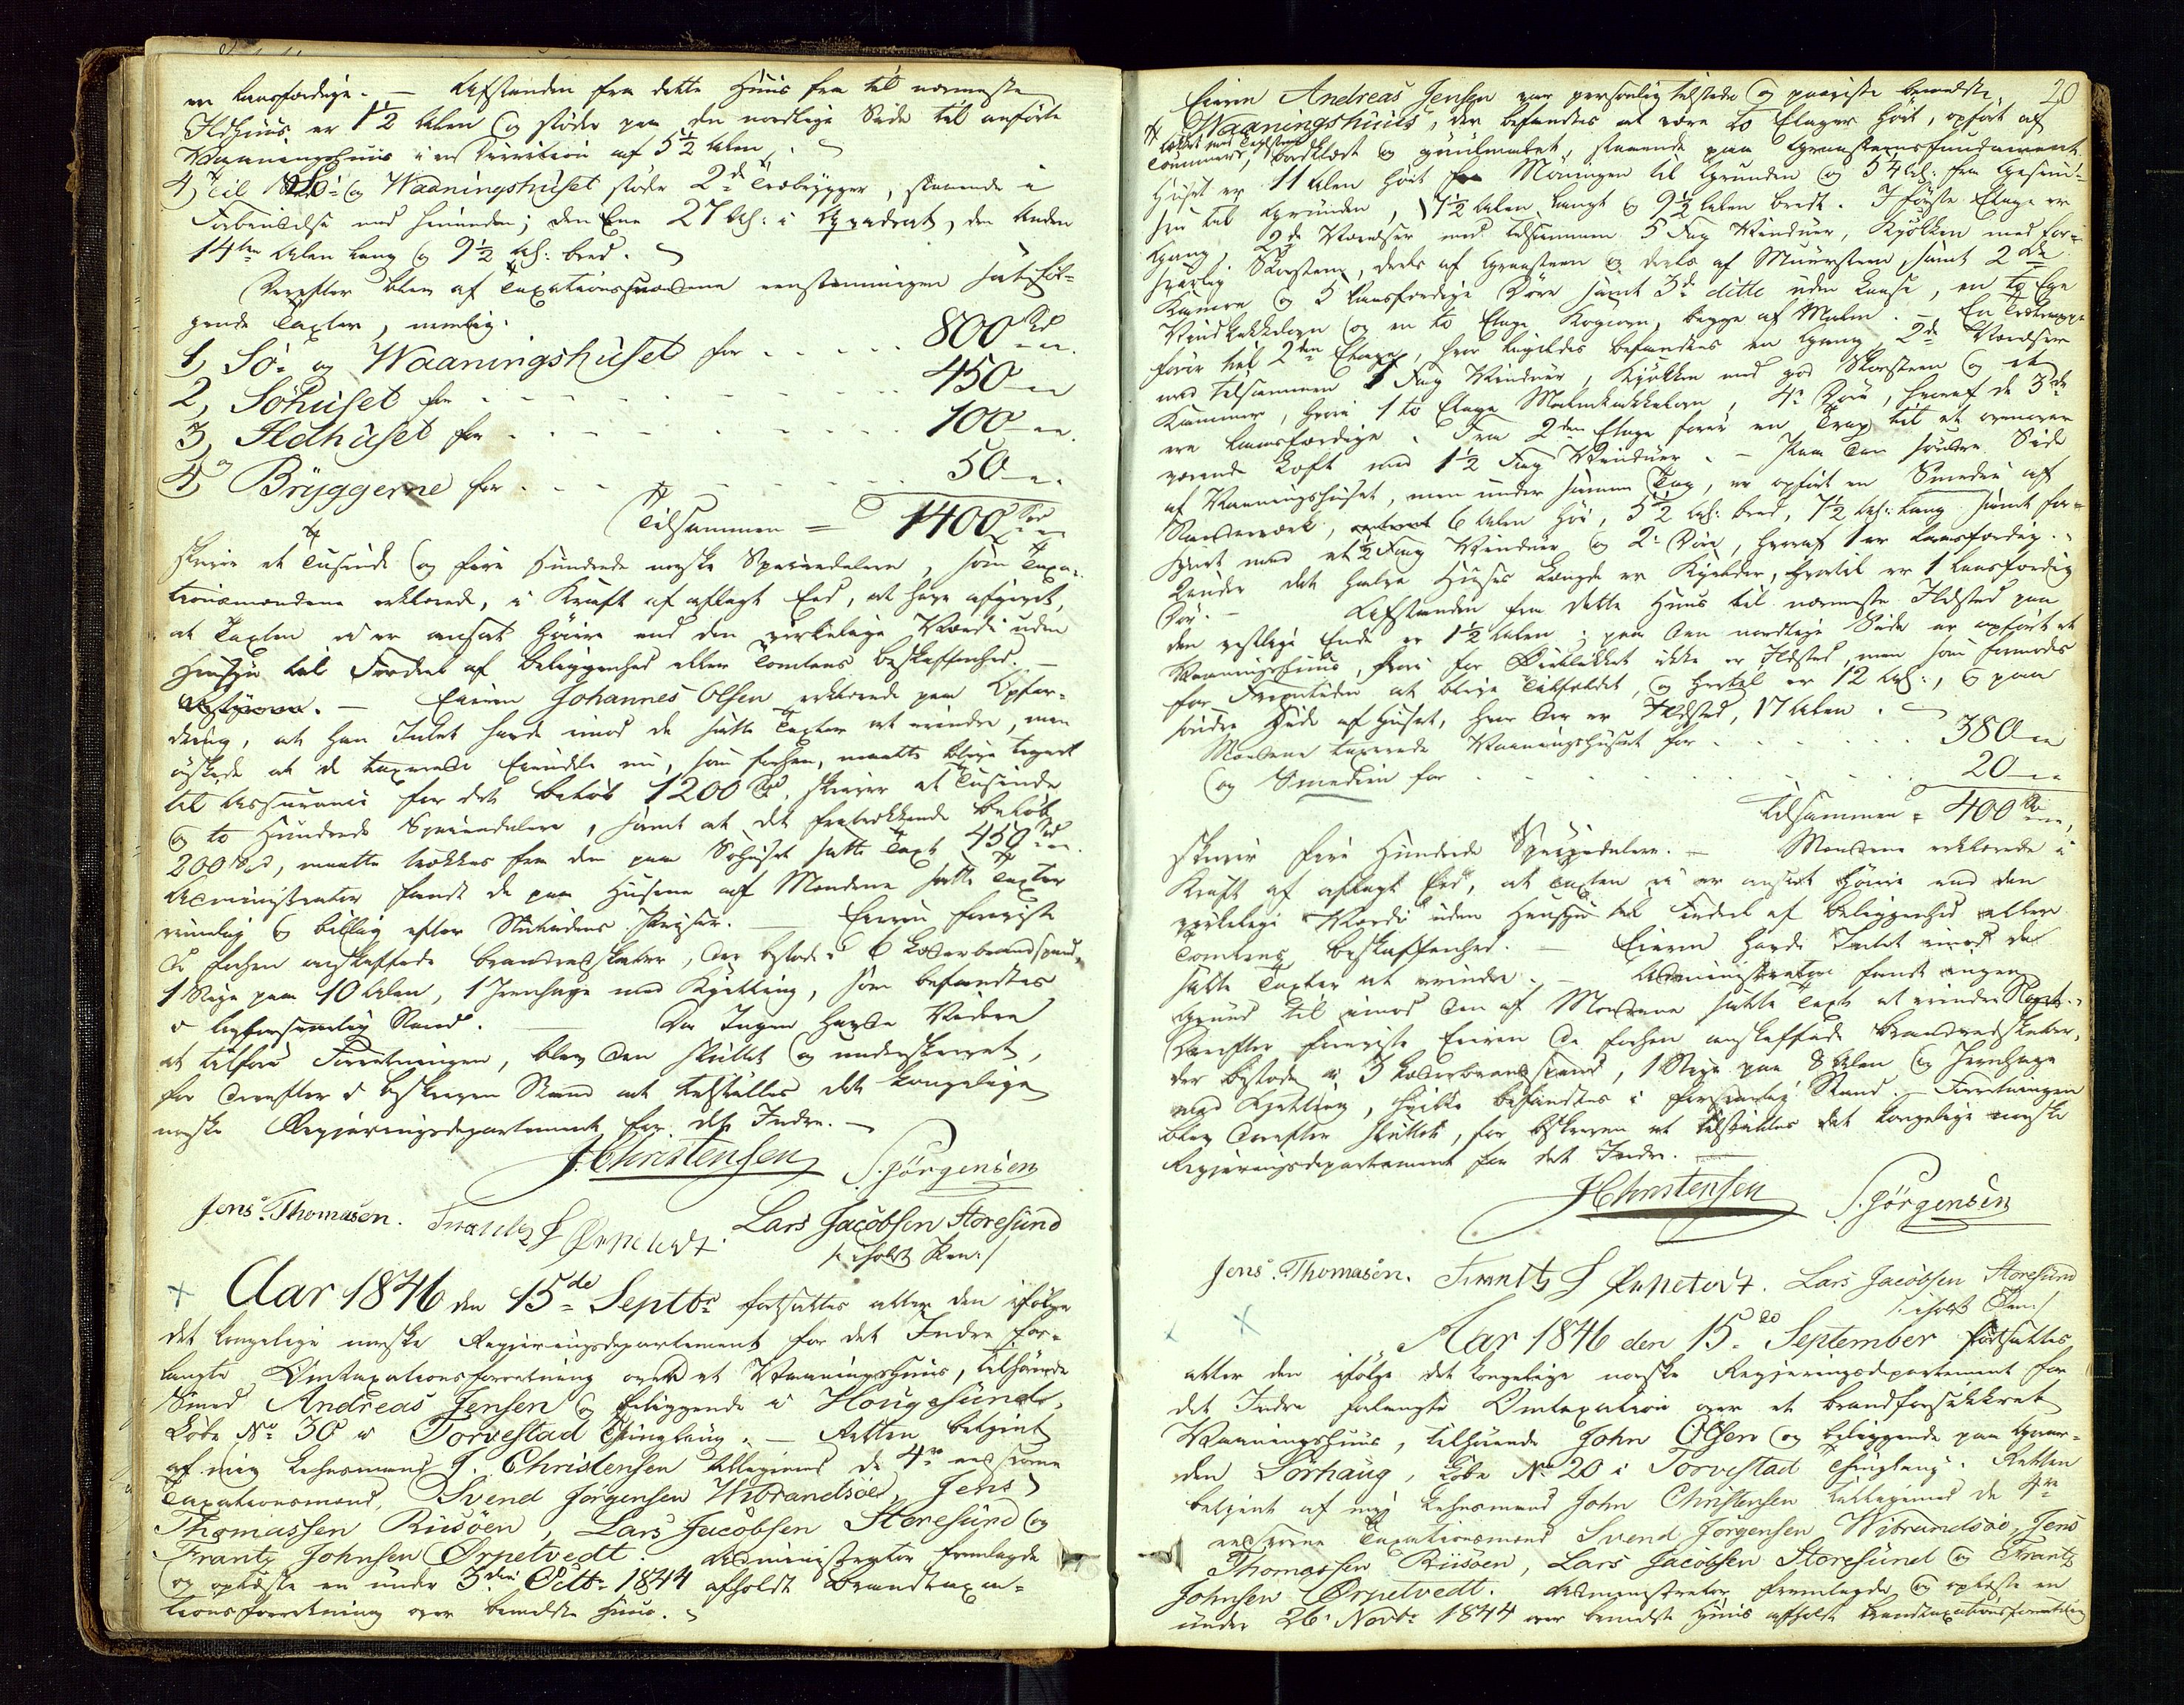 ere laasfærdige. — Afstanden fra dette Huus fra til nærmeste
Ildhuus er 1½ Alen og støder paa den nordlige Side til anførte
Waaningshuus i en Direction af 5½ Alen.
4, Til Sø- og Waaningshuset støder 2de Træbrygger, staaende i
Forbindelse med hinanden; den Ene 27 Al: i Qvadrat, den Anden
14ten Alen lang og 9½ Al: bred.
Derefter blev af Taxationsmændene eenstemmigen sat føl-
gende Taxter, nemlig:
1, Sø- og Waaningshuset for . . . . 800 Spd
2, Söhuset for . . . . 450 „
3, Ildhuset for . . . . 100 „
og
4, Bryggerne for . . . . 50 „
Tilsammen = 1400 Spd
skriver et Tusinde og fire Hundrede norske Speciedalere, som Taxa-
tionsmændene erklærede, i Kraft af aflagt Eed, at have afgivet,
at Taxten ei er ansat høiere end den virkelige Værdi uden
Hensyn til Fordeel af Beliggenhed eller Tomtens Beskaffenhed. —
— Eieren Johannes Olsen erklærede paa Opfor-
dring, at han Intet havde imod de satte Taxter at erindre, men
ønskede at de taxerede Eiendele nu, som forhen, maatte blive tegnet
til Assurance for det Beløb 1200 Spd, skriver et Tusinde
og to Hundrede Speciedalere, samt at det fratrækkende Beløb
200 Spd, maatte trækkes fra den paa Søhuset satte Taxt 450 Spd.
Administrator fandt de paa Husene af Mændene satte Taxter
rimelig og billig efter Nutidens Priser. — Eieren foreviste
de forhen anskaffede Brandredskaber, der bestode i 6 Læderbrandspand,
1 Stige paa 10 Alen, 1 Jernhage med Kjetting, som befandtes
i lovforsvarlig Stand. — Da Ingen havde Videre
at tilføre Forretningen, blev den sluttet og underskrevet,
for derefter i beskreven Stand at tilstilles det kongelige
norske Regjeringsdepartement for det Indre. —
J. Christensen S. Jörgensen
Jens Thomasen. Frantz J Ørpetvedt. Lars Jacobsen Storesund
/: iholdt Pen :/
Aar 1846 den 15de Septbr fortsattes atter den ifölge
det kongelige norske Regjeringsdepartement for det Indre for-
langte Omtaxationsforretning over et Waaningshuus, tilhørende
Smed Andreas Jensen og beliggende i Hougesund,
Løbe No 30 i Torvestad Thinglaug. — Retten betjent
af mig Lehnsmand J. Christensen tilligemed de 4re eedsvorne
Taxationsmænd, Svend Jörgensen Wibrandsöe, Jens
Thomassen Riisöen, Lars Jacobsen Storesund og
Frantz Johnsen Ørpetvedt. Administrator fremlagde
og oplæste en under 3die Octbr 1844 afholdt Brandtaxa-
tionsforretning over bemeldte Huus.
20
Eieren Andreas Jensen var personlig tilstede og paaviste bemeldte
Waaningshuus, der befandtes at være to Etager høit, opført af
tækket med Taglsteen
Tømmer, bordklædt og guulmalet, staaende paa Graasteensfundament.
Huset er 11 Alen høit fra Möningen til Grunden og 5¼ Al: fra Gesim-
sen til Grunden, 17½ Alen langt og 9½ Alen bredt. I første Etage er
Gang, 2de Værelser med tilsammen 5 Fag Vinduer, Kjökken med for-
svarlig Skorsteen, deels af Graasteen og deels af Muursteen, samt 2de
Kamere og 5 laasfærdige Döre samt 3de ditto uden Laase, en to Etages
Vindkakkelovn og en to Etages Kogeovn, begge af Malm. — En Trætrappe
fører til 2den Etage, hvor ligeledes befandtes en Gang, 2de Værelser
med tilsammen 5 Fag Vinduer, Kjökken med god Skorsteen og et
Kammer, hvori 1 to Etages Malmkakkelovn, 4re Döre, hvoraf de 3de
ere laasfærdige. Fra 2den Etage fører en Trap til et ovenover
værende Loft med 1½ Fag Vinduer. — Paa den söndre Side
af Waaningshuset, men under samme Tag, er opført en Smedie af
Stavværk, 6 Alen høi, 5½ Al: bred, 7½ Al: lang samt for-
synet med et ½ Fag Vinduer og 2de Döre, hvoraf 1 er laasfærdig.
Under det halve Huses Længde er Kjelder, hvortil er 1 laasfærdig
Dör. — Afstanden fra dette Huus til nærmeste Ildsted paa
den vestlige Ende er 1½ Alen; paa den nordlige Side er opført et
Waaningshuus, hvori for Øieblikket ikke er Ildsted, men som formodes
for Fremtiden at blive Tilfældet, og hertil er 12 Al:, og paa
söndre Side af Huset, hvor der er Ildsted, 17 Alen.
Mændene taxerede Waaningshuset for . . . . 380 „
og Smedien for . . . . 20 „
Tilsammen = 400 Spd,
skriver fire Hundrede Speciedalere. — Mændene erklærede i
Kraft af aflagt Eed, at Taxten ei er ansat høiere end den
virkelige Værdi uden Hensyn til Fordeel af Beliggenhed eller
Tomtens Beskaffenhed. — Eieren havde Intet imod de
satte Taxter at erindre. — Administrator fandt ingen
Grund til imod den af Mændene satte Taxt at erindre Noget.
Derefter foreviste Eieren de forhen anskaffede Brandredskaber,
der bestode i 3 Læderbrandspand, 1 Stige paa 8 Alen og Jernhage
med Kjetting, hvilke befandtes i forsvarlig Stand. — Forretningen
blev derefter sluttet, for beskreven at tilstilles det kongelige norske
Regjeringsdepartement for det Indre. —
J Christensen S. Jörgensen
Jens Thomasen. Frantz J Ørpetvedt. Lars Jacobsen Storesund
/: iholdt Pen :/
Aar 1846 den 15de September fortsattes
atter den ifølge det kongelige norske Regjeringsdepartement for
det Indre forlangte Omtaxation over et brandforsikkret
Waaningshuus, tilhørende John Olsen og beliggende paa Gaar-
den Sörhaug, Løbe No 20 i Torvestad Thinglaug. Retten
betjent af mig Lehnsmand John Christensen tilligemed de 4re
eedsvorne Taxationsmænd Svend Jörgensen Wibrandsöe, Jens
Thomassen Riisöen, Lars Jacobsen Storesund og Frantz
Johnsen Ørpetvedt. Administrator fremlagde og oplæste en
under 26 Novbr 1844 over bemeldte Huus afholdt Brandtaxationsforretning